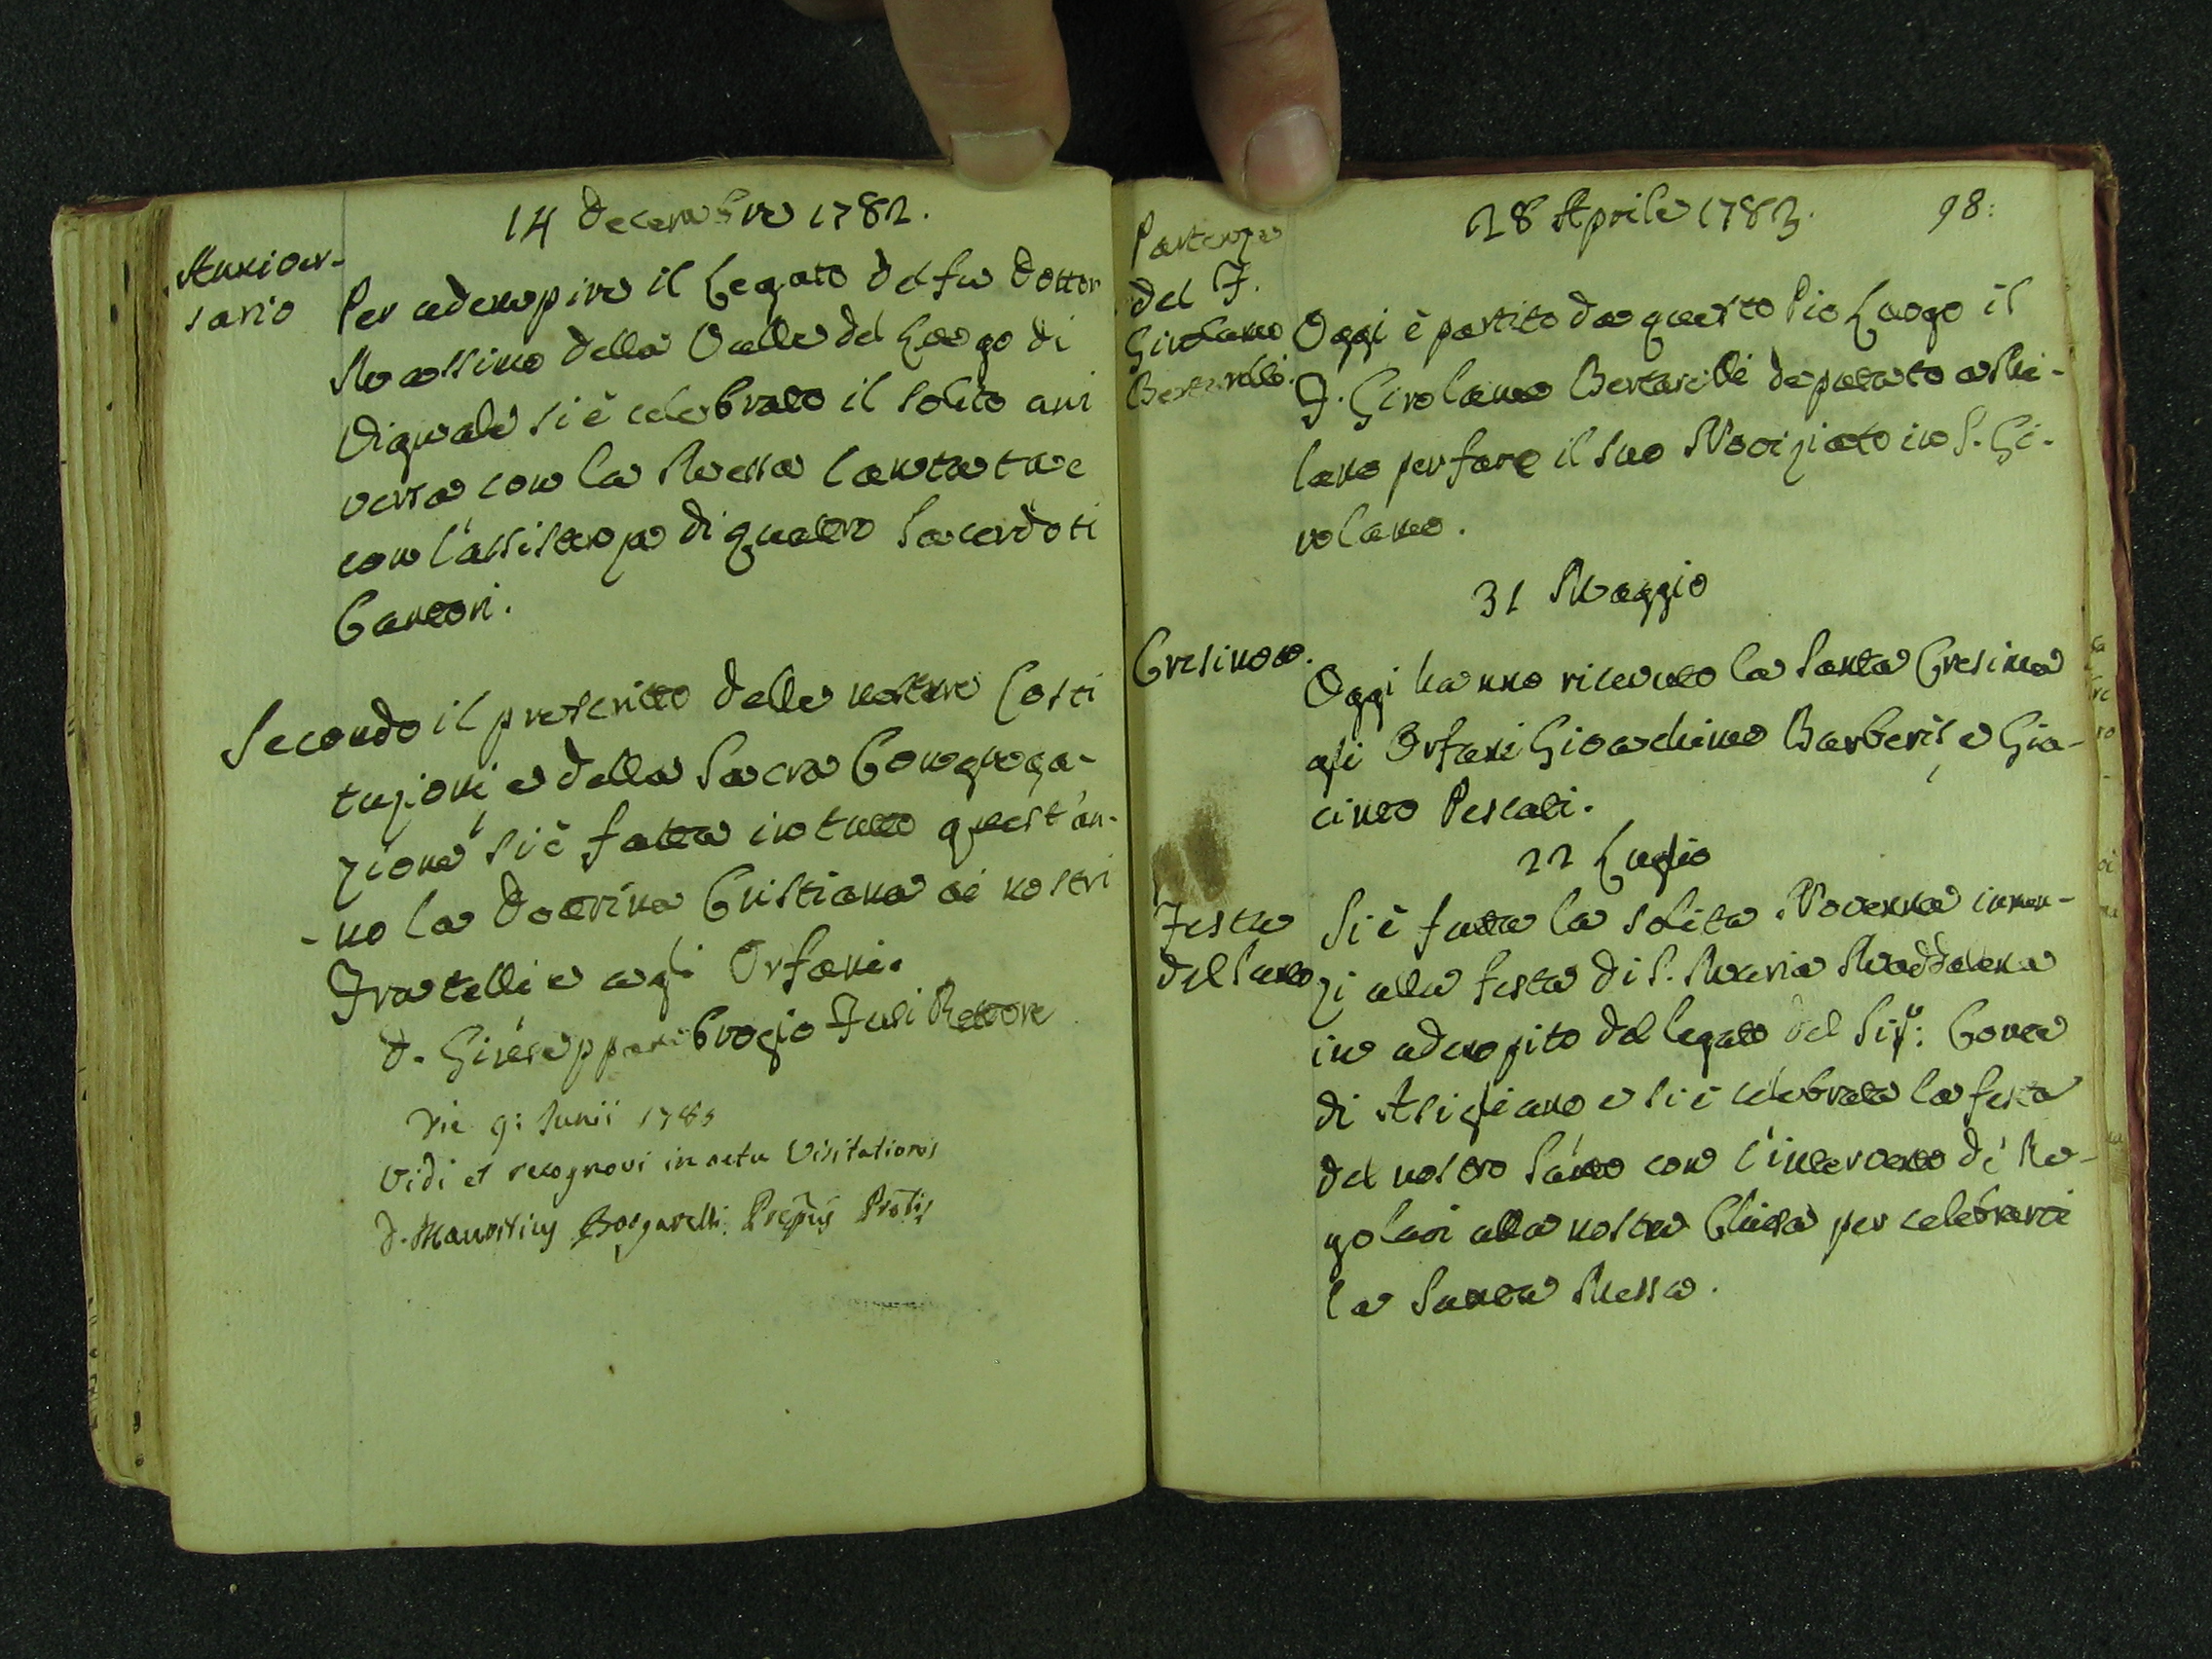 14 Decembre 1782.
Anniver-
sario
Per adempire il Legato del fu Dottor
Massimo della Valle del Luogo di
Vignale si è celebrato il solito ani
versa, con la Messa Cantata e
con l'assistenza di quattro Sacerdoti
Cantori.
Secondo il prescritto delle nostre Costi
tuzioni e della Sacra Congrega-
zione si è fatta in tutto quest'an-
-no la Dottrina Cristiana ai nostri
Fratelli e agli Orfani.
D. Giuseppe Rettore
Die 9: Junii 1783
Vidi et recognovi in actu Visitationis
D. Mauritius Borgarelli Prep.us Prolis
28 Aprile 1783. 98:
Partenza
del F.
Girolamo
Bertarelli.
Oggi è partito da questo Pio Luogo il
F. Girolamo Bertarelli deputato a Mi-
lano per fare il suo Noviziato in S. Gi-
rolamo.
31 Maggio
Cresima.
Oggi hanno ricevuto la Santa Cresima
gli Orfani Gioachimo Barberis, e Gia-
cinto Pescati.
22 Luglio
Festa
del Santo
Si è fatta la solita Novenna innan-
zi alla festa di S. Maria Maddalena
in adempito del legato del Sig.r: Conca
di Asigliano e si è celebrata la festa
del nostro Santo con l'intervento de' Re-
golari alla nostra Chiesa per celebrarvi
la Santa Messa.